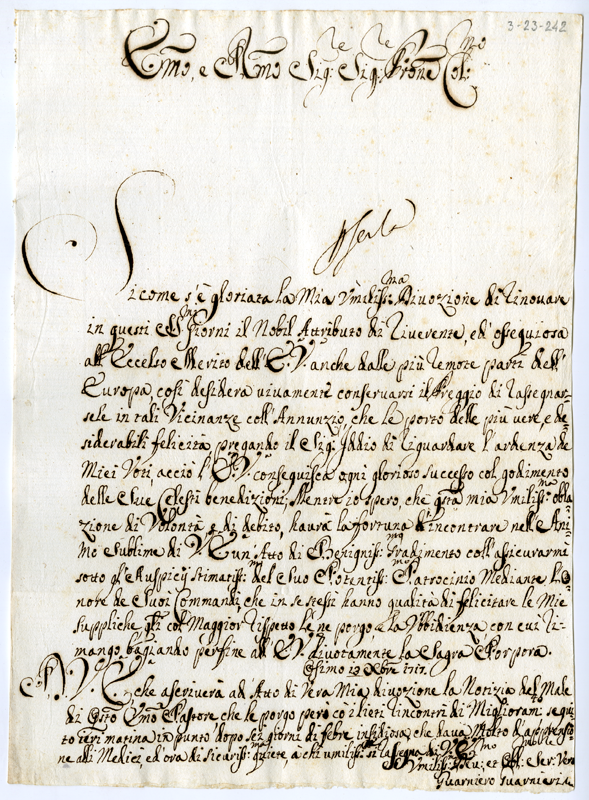 3-23-242
Em̃o, e R̃mo Sig:re Sig:re P̃rone Col:mo
Si come s'è gloriata la Mia Vmiliss:ma Divozione di rinovare
in questi Giorni il Nobil Attributo di riverente, ed' ossequiosa
all' Eccelso Merito dell' E. V.a anche dalle più remote parti dell'
Europa, così desidera vivamente conservarsi il Preggio di rassegnar-
sele in tali Vicinanze coll' Annunzio, che le porto delle più vere, e de-
siderabili felicità pregando il Sig: Iddio di riguardare l'ardenza de
Miei Voti, acciò l' E. V. conseguisca ogni glorioso successo col godimento
delle Sue Celesti benedizioni; Mentre io spero, che q̃sta mia Vmiliss:ma obla-
zione di Volontà e di debito, haurà la fortuna d'incontrare nell' Ani-
mo Sublime di V. E. un' Atto di Benigniss:mo Gradimento coll' assicurarmi
sotto gl' Auspicij stimatiss:mi del Suo Potentiss:mo Patrocinio Mediante l'O-
nore de Suoi Commandi, che in se stessi hanno qualità di felicitare le Mie
suppliche, col Maggior rispetto le ne porgo la Vbbidienza con cui ri-
mango, baciando per fine all' E. V. divotamente la Sagra Porpora.
Osimo 13 Xbre 1717.
P. V. E., che ascriverà ad Atto di Vera Mia divozione la Notizia del Male
di q̃sto Em̃o Pastore che le porgo però cõ i lieti rincontri di Miglioram:to segui-
to ieri matina in punto dopo sei giorni di febre insidiosa, che dava Molto d'apprensio-
ne alli Medici, ed' ora di sicuriss:ma quiete, à chi umiliss:te si rasegna di V. E.
Vmiliss: Deu: et Obl: Ser: Vero
Guarniero Guarnieri